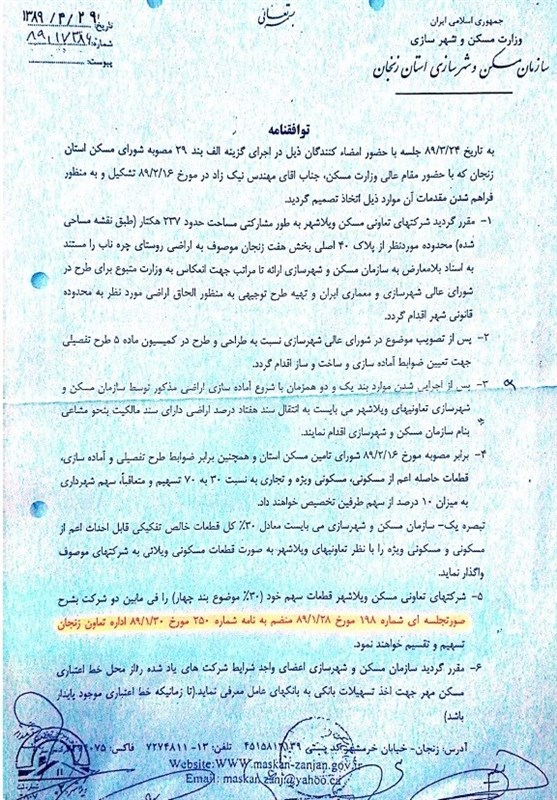 بسمه تعالی
جمهوری اسلامی ایران
وزارت مسکن و شهر سازی
سازمان مسکن و شهرسازی استان زنجان
تاریخ: ۱۳۸۹/۴/۲۹
شماره: ۸۹/۱۷۳۸۶
پیوست:
توافقنامه
به تاریخ ۸۹/۳/۲۴ جلسه با حضور امضاء کنندگان ذیل در اجرای گزینه الف بند ۲۹ مصوبه شورای مسکن استان
زنجان که با حضور مقام عالی وزارت مسکن، جناب اقای مهندس نیک زاد در مورخ ۸۹/۲/۱۶ تشکیل و به منظور
فراهم شدن مقدمات آن موارد ذیل اتخاذ تصمیم گردید.
۱- مقرر گردید شرکتهای تعاونی مسکن ویلاشهر به طور مشارکتی مساحت حدود ۲۳۷ هکتار (طبق نقشه مساحی
شده) محدوده موردنظر از پلاک ۴۰ اصلی بخش هفت زنجان موصوف به اراضی روستای چره ناب را مستند
به اسناد بلامعارض به سازمان مسکن و شهرسازی ارائه تا مراتب جهت انعکاس به وزارت متبوع برای طرح در
شورای عالی شهرسازی و معماری ایران و تهیه طرح توجیهی به منظور الحاق اراضی مورد نظر به محدوده
قانونی شهر اقدام گردد.
۲- پس از تصویب موضوع در شورای عالی شهرسازی نسبت به طراحی و طرح در کمیسیون ماده ۵ طرح تفصیلی
جهت تعیین ضوابط آماده سازی و ساخت و ساز اقدام گردد.
۳- پس از اجرایی شدن موارد بند یک و دو همزمان با شروع آماده سازی اراضی مذکور توسط سازمان مسکن و
شهرسازی تعاونیهای ویلاشهر می بایست به انتقال سند هفتاد درصد اراضی دارای سند مالکیت بنحو مشاعی
بنام سازمان مسکن و شهرسازی اقدام نمایند.
۴- برابر مصوبه مورخ ۸۹/۲/۱۶ شورای تامین مسکن استان و همچنین برابر ضوابط طرح تفصیلی و آماده سازی،
قطعات حاصله اعم از مسکونی، مسکونی ویژه و تجاری به نسبت ۳۰ به ۷۰ تسهیم و متعاقباً، سهم شهرداری
به میزان ۱۰ درصد از سهم طرفین تخصیص خواهند داد.
تبصره یک- سازمان مسکن و شهرسازی می بایست معادل ۳۰٪ کل قطعات خالص تفکیکی قابل احداث اعم از
مسکونی و مسکونی ویژه را با نظر تعاونیهای ویلاشهر به صورت قطعات مسکونی ویلائی به شرکتهای موصوف
واگذار نماید.
۵- شرکتهای تعاونی مسکن ویلاشهر قطعات سهم خود (۳۰٪ موضوع بند چهار) را فی مابین دو شرکت بشرح
صورتجلسه ای شماره ۱۹۸ مورخ ۸۹/۱/۲۸ منضم به نامه شماره ۲۵۰ مورخ ۸۹/۱/۳۰ اداره تعاون زنجان
تسهیم و تقسیم خواهند نمود.
۶- مقرر گردید سازمان مسکن و شهرسازی اعضای واجد شرایط شرکت های یاد شده را از محل خط اعتباری
مسکن مهر جهت اخذ تسهیلات بانکی به بانکهای عامل معرفی نماید.(تا زمانیکه خط اعتباری موجود پایدار
باشد)
آدرس: زنجان- خیابان خرمشهر کد پستی تلفن: ۱۳- ۷۲۷۴۸۱۱ فاکس:
Website:WWW.maskan-zanjan.gov.ir
Email: maskan.zanj@yahoo.ca